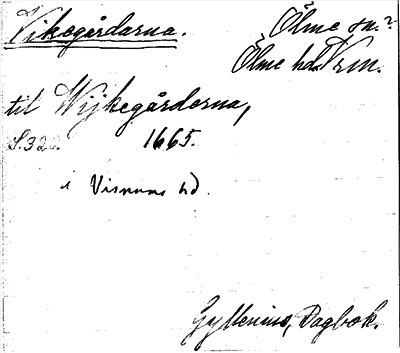 Vikegårdarna.
Ölme sn.?
Ölme hd. Vrm.
til Wijkegårderna,
S. 320. 1665.
i Visnums hd.
Gyllenius, Dagbok.